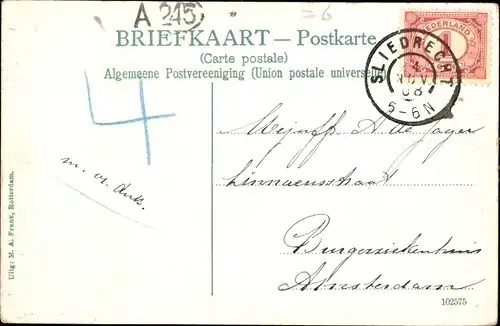 A 245
=6
BRIEFKAART — Postkarte
(Carte postale)
Algemeene Postvereeniging (Union postale universelle)
NEDERLAND
1
SLIEDRECHT
4
NOV
08
5-6N
4
Mejuff. A de Jager
Linnaeusstraat
Burgerziekenhuis
Amsterdam
m. vr. dank.
Uitg: M. A. Frank, Rotterdam.
102575